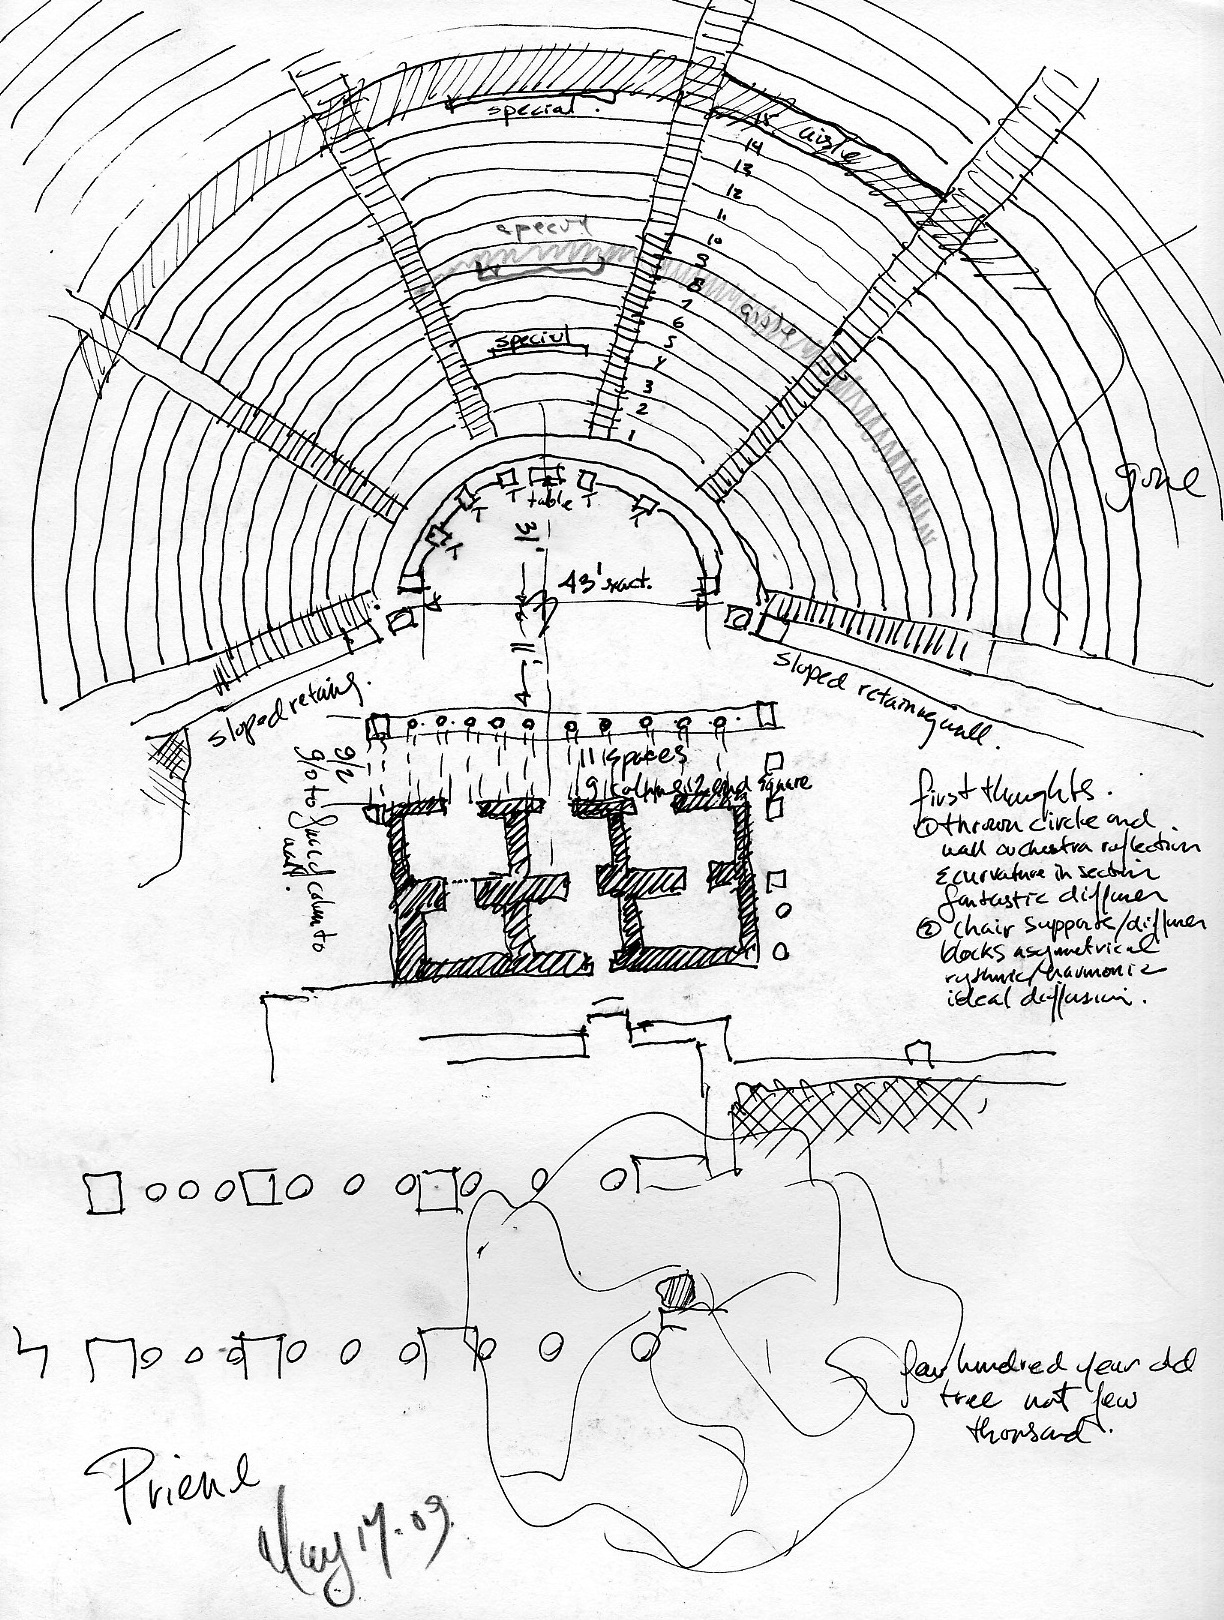 special.
15
aisle
14
13
12
11
10
special
9
8
aisle
7
6
5
special
4
3
2
1
gone
table
T
T
T
T
T
31'
43' exact.
11'
sloped retaing.
sloped retaining wall.
11 spaces
9 columns 2 end square
9/2
9/0 to
column to
wall.
first thoughts.
① thrown circle and
wall orchestra reflection
& curvature in section
fantastic diffuser
② chair supports/diffuser
blocks asymmetrical
rythmic/harmonic
ideal diffusion.
few hundred year old
tree not few
thousand.
Priene
May 17-09